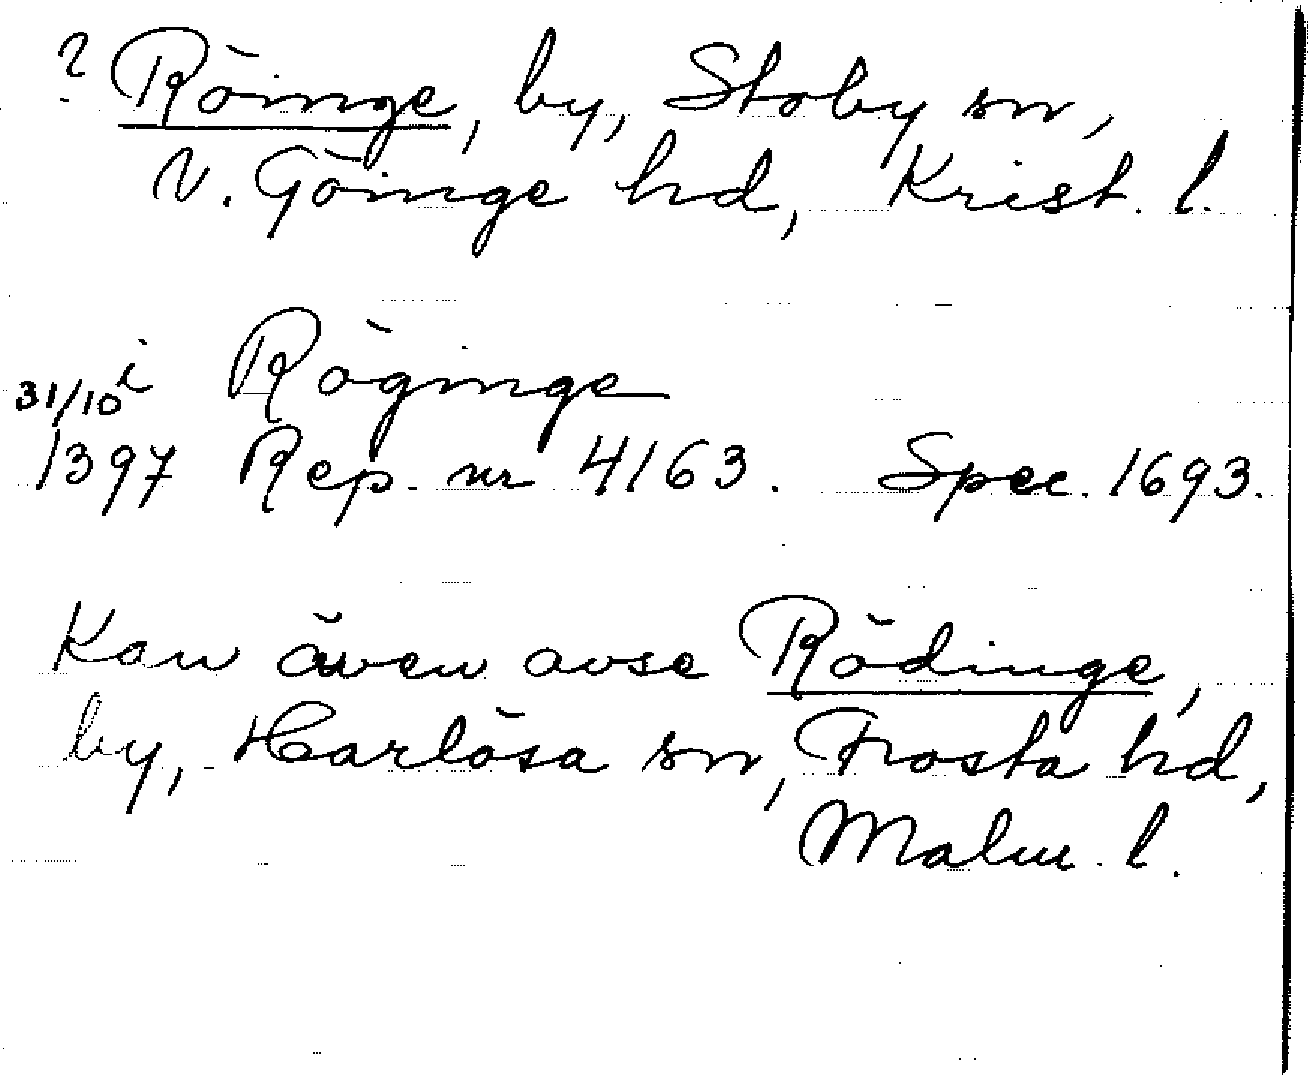 ? Röinge, by, Stoby sn,
V. Göinge hd, Krist. l.
31/10 i Röginge
1397 Rep. nr 4163. Spec. 1693.
Kan även avse Rödinge,
by, Harlösa sn, Frosta hd,
Malm. l.